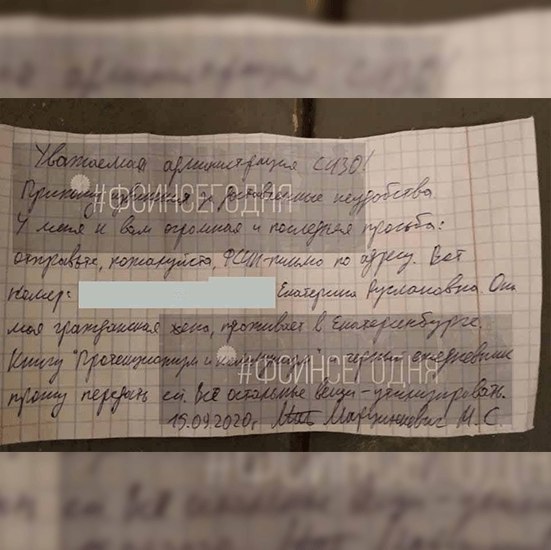 Уважаемая администрация СИЗО!
Приношу извинения за доставленные неудобства.
#ФСИНСЕГОДНЯ
У меня к вам огромная и последняя просьба:
отправьте, пожалуйста, ФСИН-письмо по адресу. Вот
номер: Екатерина Руслановна. Она
моя гражданская жена, проживает в Екатеринбурге.
Книгу "Протекционизм и коммунизм" и черный ежедневник
#ФСИНСЕГОДНЯ
прошу передать ей. Всё остальные вещи - утилизировать.
15.09.2020г. Марцинкевич М.С.